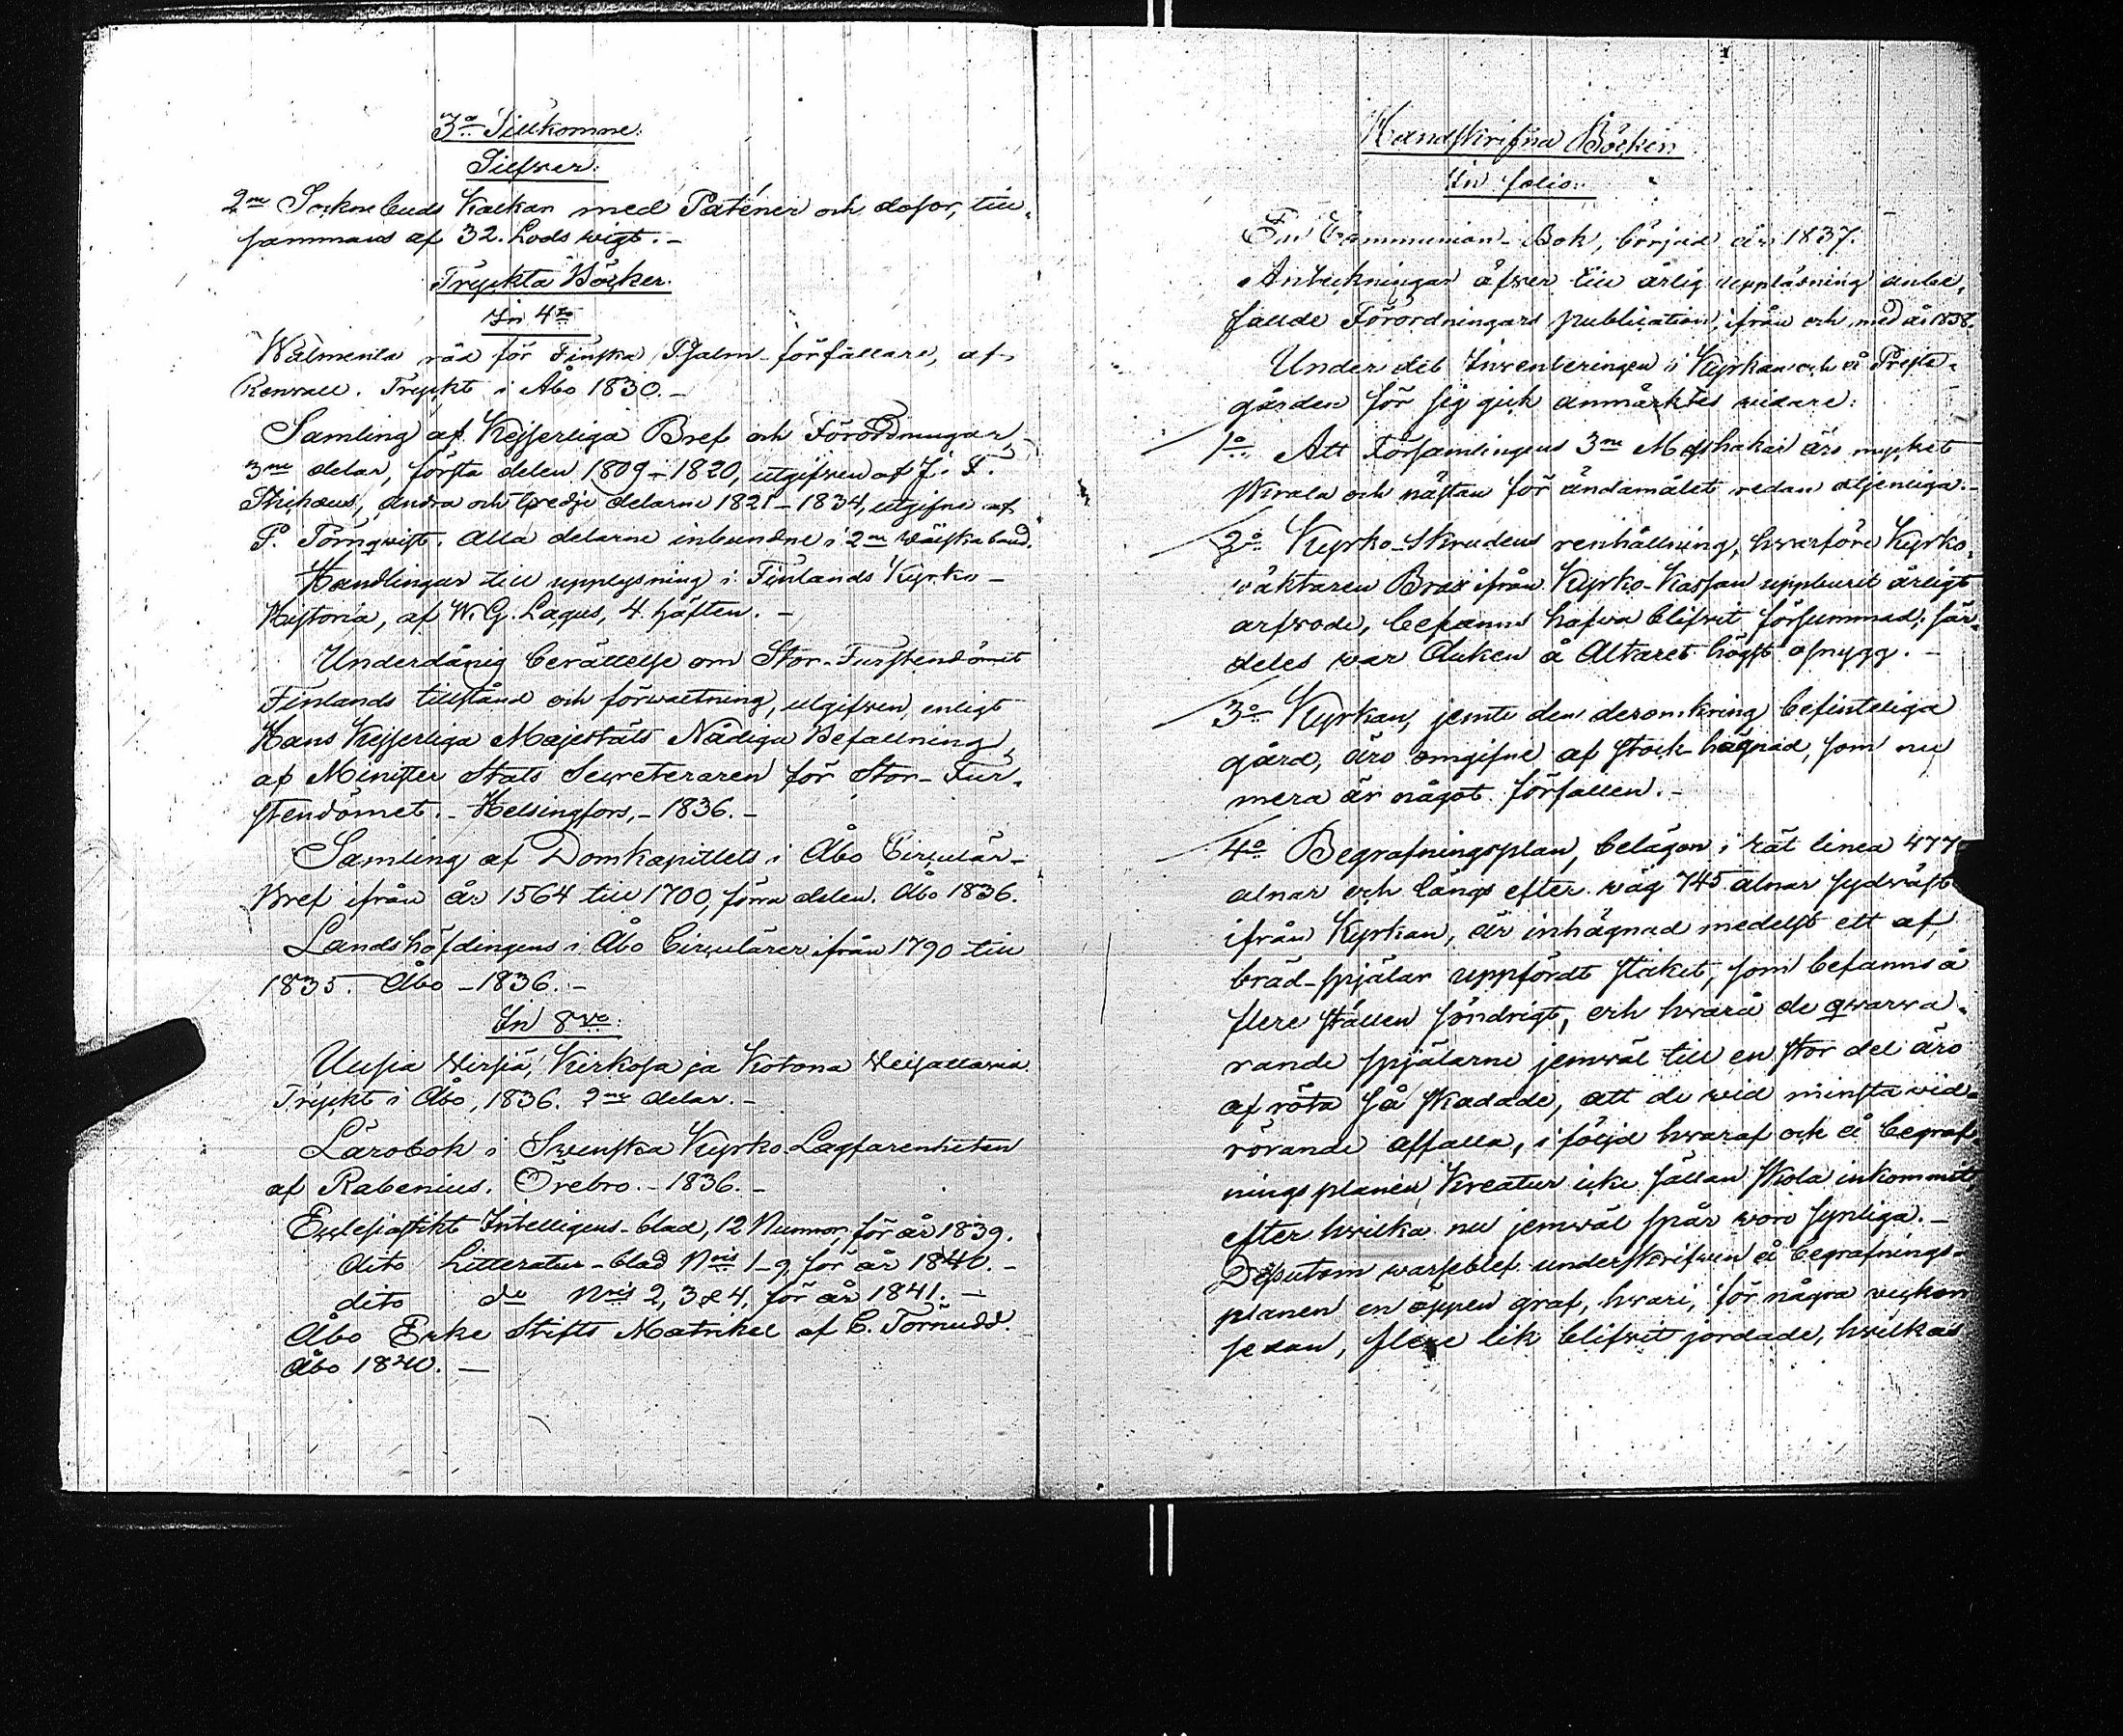 3o Tillkomne.
Silfver.
2ne Sockne buds Kalkar med Paténer och dosor, till-
sammans af 32. Lods wigt. -
Tryckta Böcker.
In 4to
Wälmenta råd för Finska Psalm-författare, af
Renvall. Tryckt i Åbo 1830. -
Samling af Kejserliga Bref och Förordningar,
3ne delar, första delen 1809-1820, utgifven af J. F.
andra och tredje delarne 1821-1834, utgifne af
P. Törnqvist. Alla delarne inbundne i 2ne band.
Handlingar till upplysning i Finlands Kyrko-
Historia, af W. G. Lagus, 4. häften. -
Underdånig berättelse om Stor-Furstendömet
Finlands tillstånd och förwaltning, utgifwen, enligt
Hans Kejserliga Majestäts Nådiga Befallning,
af Minister Stats Secreteraren för Stor-Fur-
stendömet. - Helsingfors, - 1836. -
Samling af Domkapitlets i Åbo Circulär-
Bref ifrån år 1564 till 1700, förra delen. Åbo 1836.
Landshöfdingens i Åbo Circulärer ifrån 1790 till
1835. Åbo - 1836. -
In 8vo.
Uusia Wirsiä, Kirkosa ja Kotona Weisattavia.
Tryckt i Åbo, 1836. 2ne delar. -
Lärobok i Swenska Kyrko Lagfarenheten
af Rabenius. Örebro. - 1836. -
Ecclesiastikt Intelligens-blad, 12 Numror, för år 1839.
dito Litteratur-blad Nris 1-9 för år 1840. -
dito do Nris 2, 3 & 4, för år 1841. -
Åbo Erke Stifts Matrikel af C. Törnudd.
Åbo 1840. -
Handskrifna Böcker.
In folio.
En Communion-Bok, börjad år 1837.
Anteckningar öfwer till årlig uppläsning anbe-
fallde Förordningars publication, ifrån och med år 1838.
Under det Inventeringen i Kyrkan och å Preste-
gården för sig gick anmärktes widare:
1o Att Församlingens 3ne Messhakar äro mycket
skrala och nästan för ändamålet redan otjenliga. -
2o Kyrko-Skrudens renhållning, hwarföre Kyrko-
wäktaren Brax ifrån Kyrko-Kassan uppburit årligt
arfwode, befanns hafwa blifwit försummad, sär-
deles war Duken å Altaret högst osnygg. -
3o Kyrkan, jemte den deromkring befinteliga
gård, äro omgifne af stock-hägnad, som nu
mera är något förfallen. -
4o Begrafningsplan, belägen i rät linea 477
alnar och längs efter wäg 745 alnar sydwäst
ifrån Kyrkan, är inhägnad medelst ett af
bräd-spjälar uppfördt staket, som befanns å
flere ställen söndrigt, och hwarå de qwarwa-
rande spjälarne jemwäl till en stor del äro
af röta så skadade, att de wid minsta wid-
rörande affalla, i följd hwaraf ock å begraf-
ningsplanen Kreatur icke sällan skola inkommit,
efter hwilka nu jemwäl spår woro synliga. -
Dessutom warseblef underskrifwen å begrafnings-
planen en öppen graf, hwari, för några weckor
sedan, flere lik blifwit jordade, hwilkas